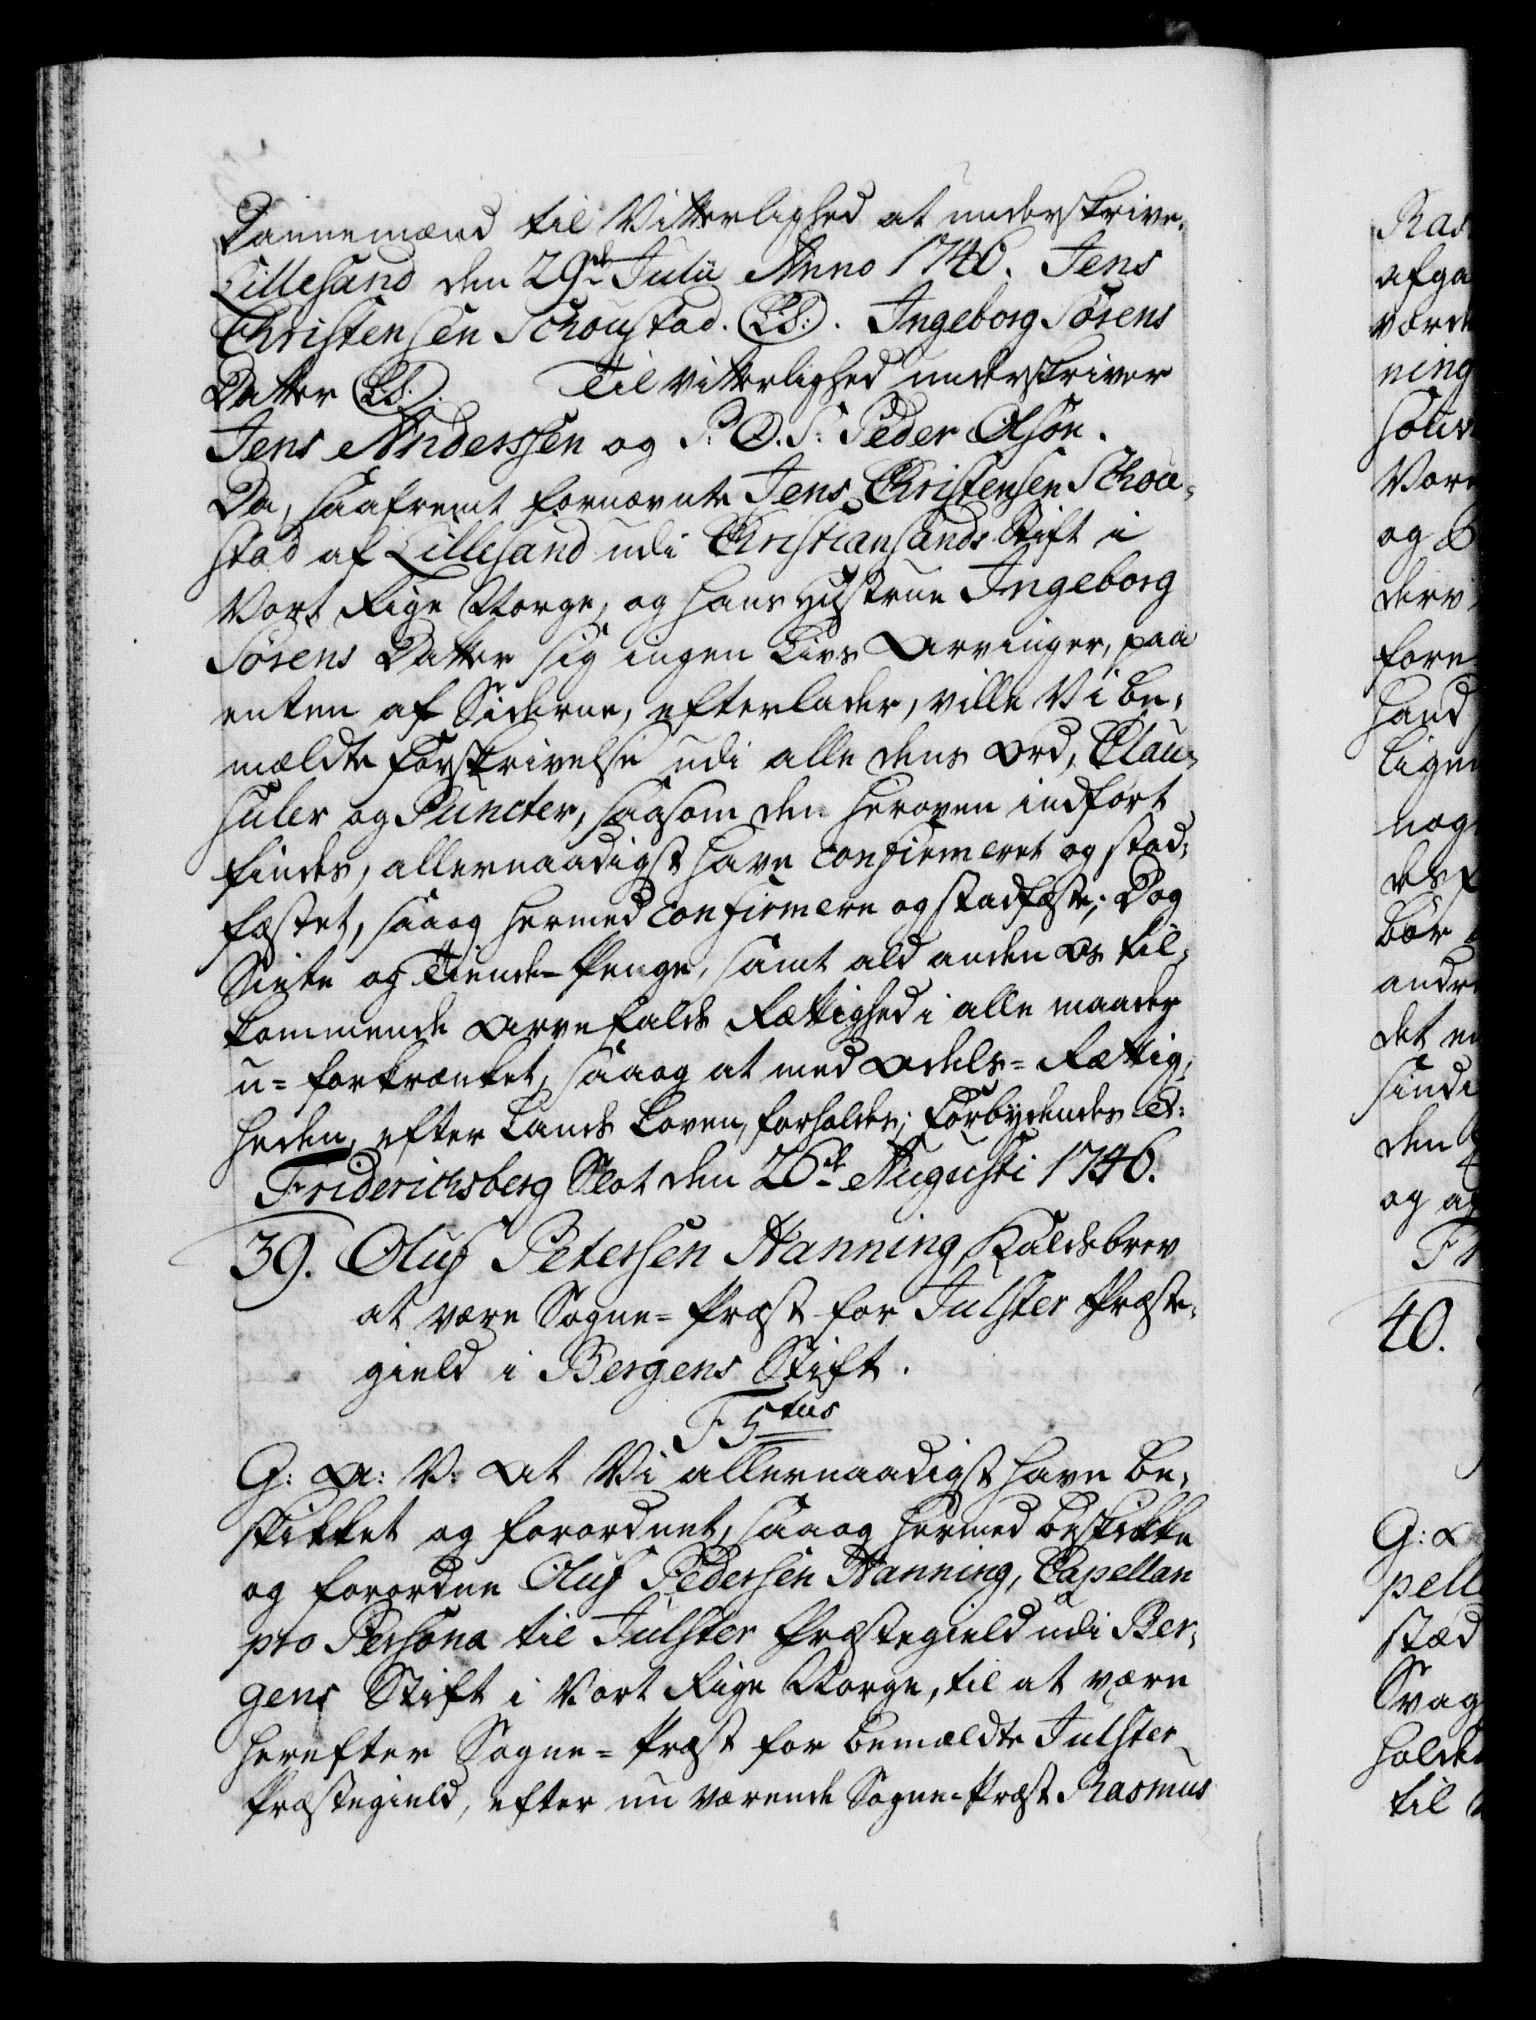 Dannemænd til Vitterlighed at underskrive.
Lillesand den 29de Julii Anno 1746. Jens
Christensen Schoustad. (LS:). Ingeborg Sørens
Datter (LS:). Til vitterlighed underskriver
Jens Anderssen og P. O. S: Peder Olsøn.
Da, saafremt fornævnte Jens Christensen Schou-
stad af Lillesand udi Christiansands Stift i
Vort Rige Norge, og hans Hustrue Ingeborg
Sørens Datter sig ingen Livs Arvinger, paa
enten af Siderne, efterlader, ville Vi be-
mældte Forskrivelse udi alle dens Ord, Clau-
suler og Puncter, saasom den heroven indført
findes, allernaadigst have confirmeret og stad-
fæstet, saa og hermed confirmere og stadfæste; Dog
Siette og Tiende-Penge, samt ald anden Os til-
kommende Arvefalds Rettighed i alle maader
u-forkrænket, saa og at med Odels-Rettig-
heden, efter Lands Loven, forholdes; Forbydendes Et:
Friderichsberg Slot den 26de Augusti 1746.
39. Oluf Petersen Hanning, Kaldsbrev
at være Sogne-Præst for Julster Præste-
gield i Bergens Stift.
F 5tus
G: A: V: At Vi allernaadigst have be-
skikket og forordnet, saa og hermed beskikke
og forordne Oluf Pedersen Hanning, Capellan
pro Persona til Julster Præstegield udi Ber-
gens Stift i Vort Rige Norge, til at være
herefter Sogne-Præst for bemældte Julster
Præstegield, efter nu værende Sogne-Præst Rasmus
40.